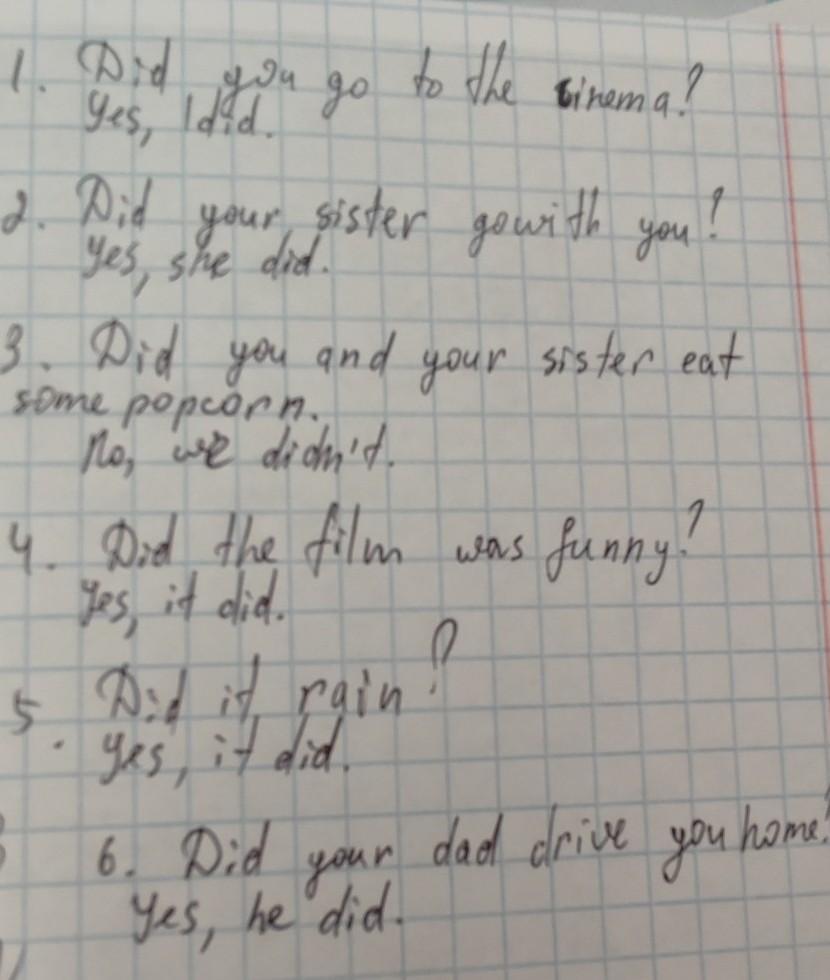 1. Did you go to the cinema?
Yes, I did.
2. Did your sister go with you?
Yes, she did.
3. Did you and your sister eat
some popcorn.
No, we didn't.
4. Did the film was funny?
Yes, it did.
5. Did it rain?
Yes, it did.
6. Did your dad drive you home?
Yes, he did.